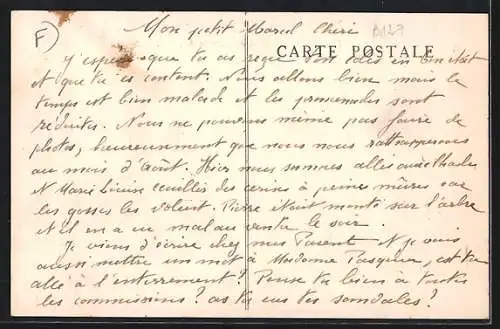 F
Mon petit Marcel Chéri
CARTE POSTALE
J'espère que tu as reçu ton colis en bon état
et que tu es content. Nous allons bien mais le
temps est bien malade et les promenades sont
réduites. Nous ne pouvons même pas faire de
photos, heureusement que nous nous rattraperons
au mois d'Août. Hier nous sommes allés avec
et Marie Louise cueillir des cerises à peine mûres car
les gosses les volent. Pierre étant monté sur l'arbre
et il en a eu mal au ventre le soir.
Je viens d'écrire chez mes Parent et je vais
aussi mettre un mot à Madame Pasquier, est tu
allé à l'enterrement? Pense tu bien à toutes
les commissions? as tu eu tes sandales?